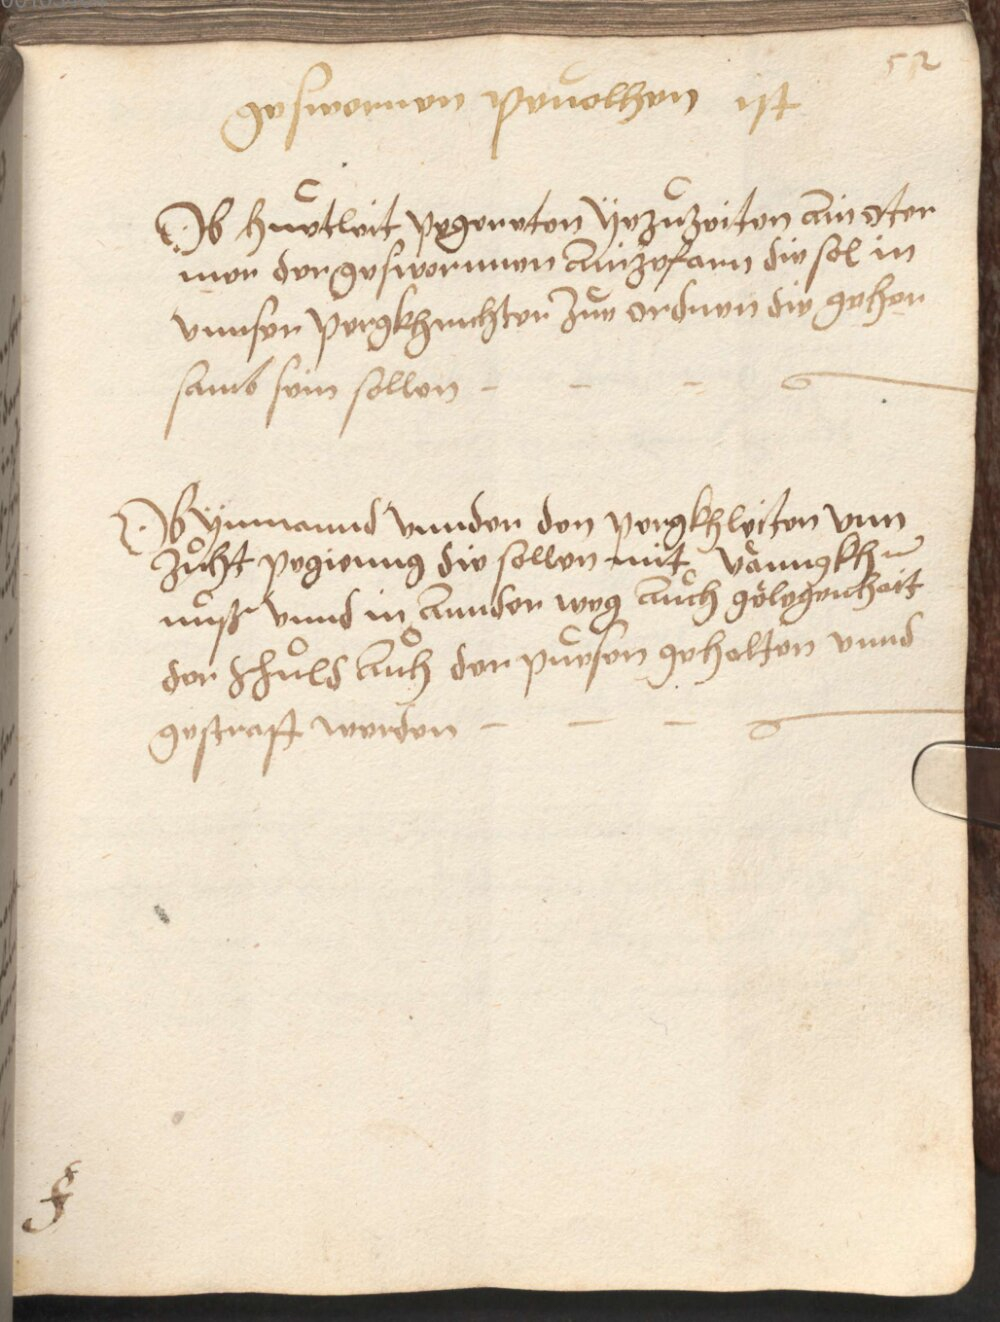 52
geswornen peuolhen ist
Ob huetleit pegerten ÿezuzeiten ain oder
mer der geswornnen ainzefarn die sol in
vnnser pergkhrichter zue ordnen die gehor
samb sein sollen
Ob ÿmannd vnnder den pergkhleiten vnn
zucht pegieng die sollen mit vänngkh
nuß vnnd in annder weg auch gelegenhait
der schuld auch der puesen gehalten vnnd
gestrafft werden